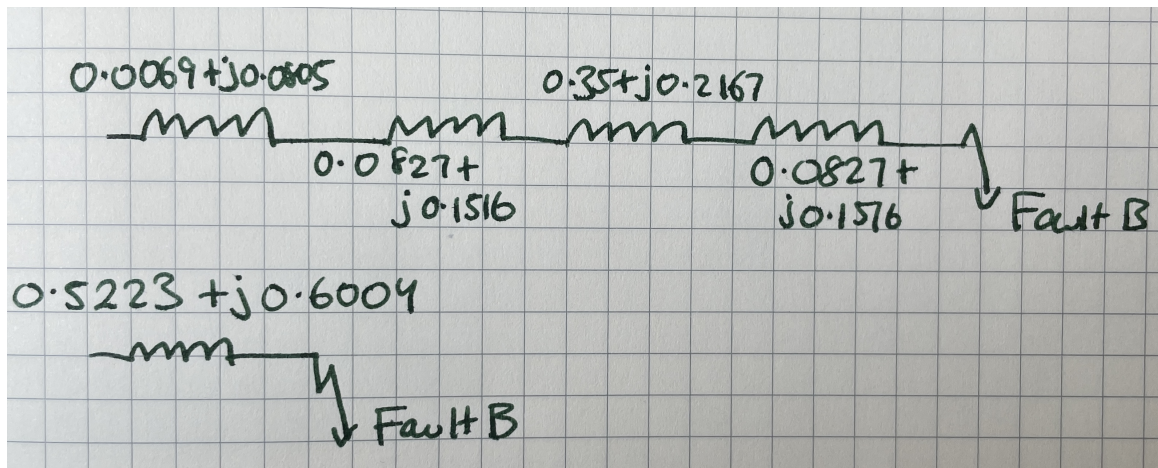 0.0069+j0.0805
0.35+j0.2167
0.0827+
j0.1516
0.0827+
j0.1516
Fault B
0.5223 +j0.6004
Fault B